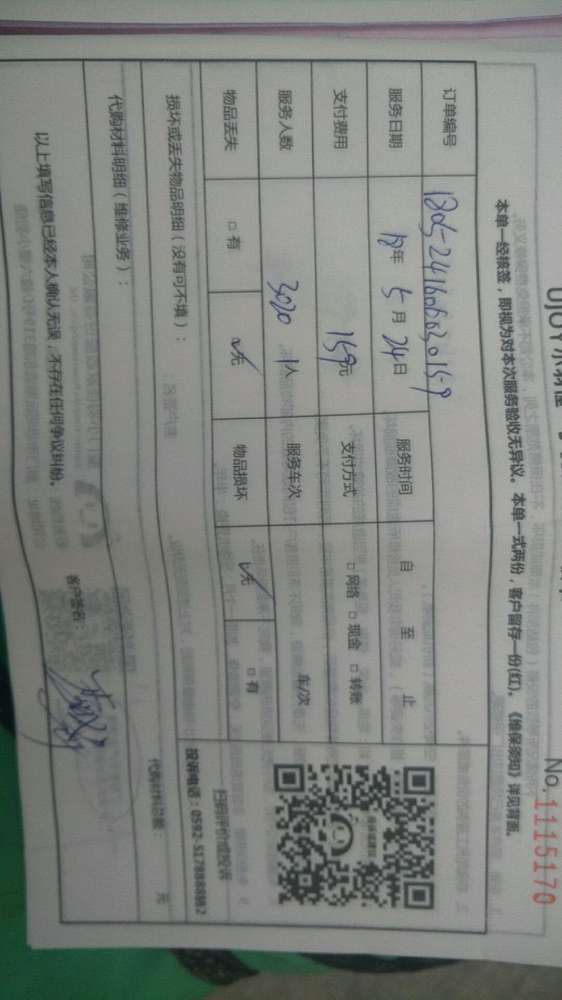 UJOY
No.1115170
本单一经核签，即视为对本次服务验收无异议。本单一式两份，客户留存一份(红)。《维保须知》详见背面。
订单编号 1805-241606030159
服务日期 18年 5月 24日 服务时间 自 至 止
支付费用 159元 支付方式 □ 网络 □ 现金 □ 转账
服务人数 3020 1人 服务车次 车/次
物品丢失 □ 有 ☑无 物品损坏 ☑无 □ 有
扫码评价或投诉
投诉电话：0592-5178888转2
损坏或丢失物品明细（没有可不填）：
代购材料明细（维修业务）：
代购材料总额： 元
以上填写信息已经本人确认无误，不存在任何争议纠纷。
客户签名：